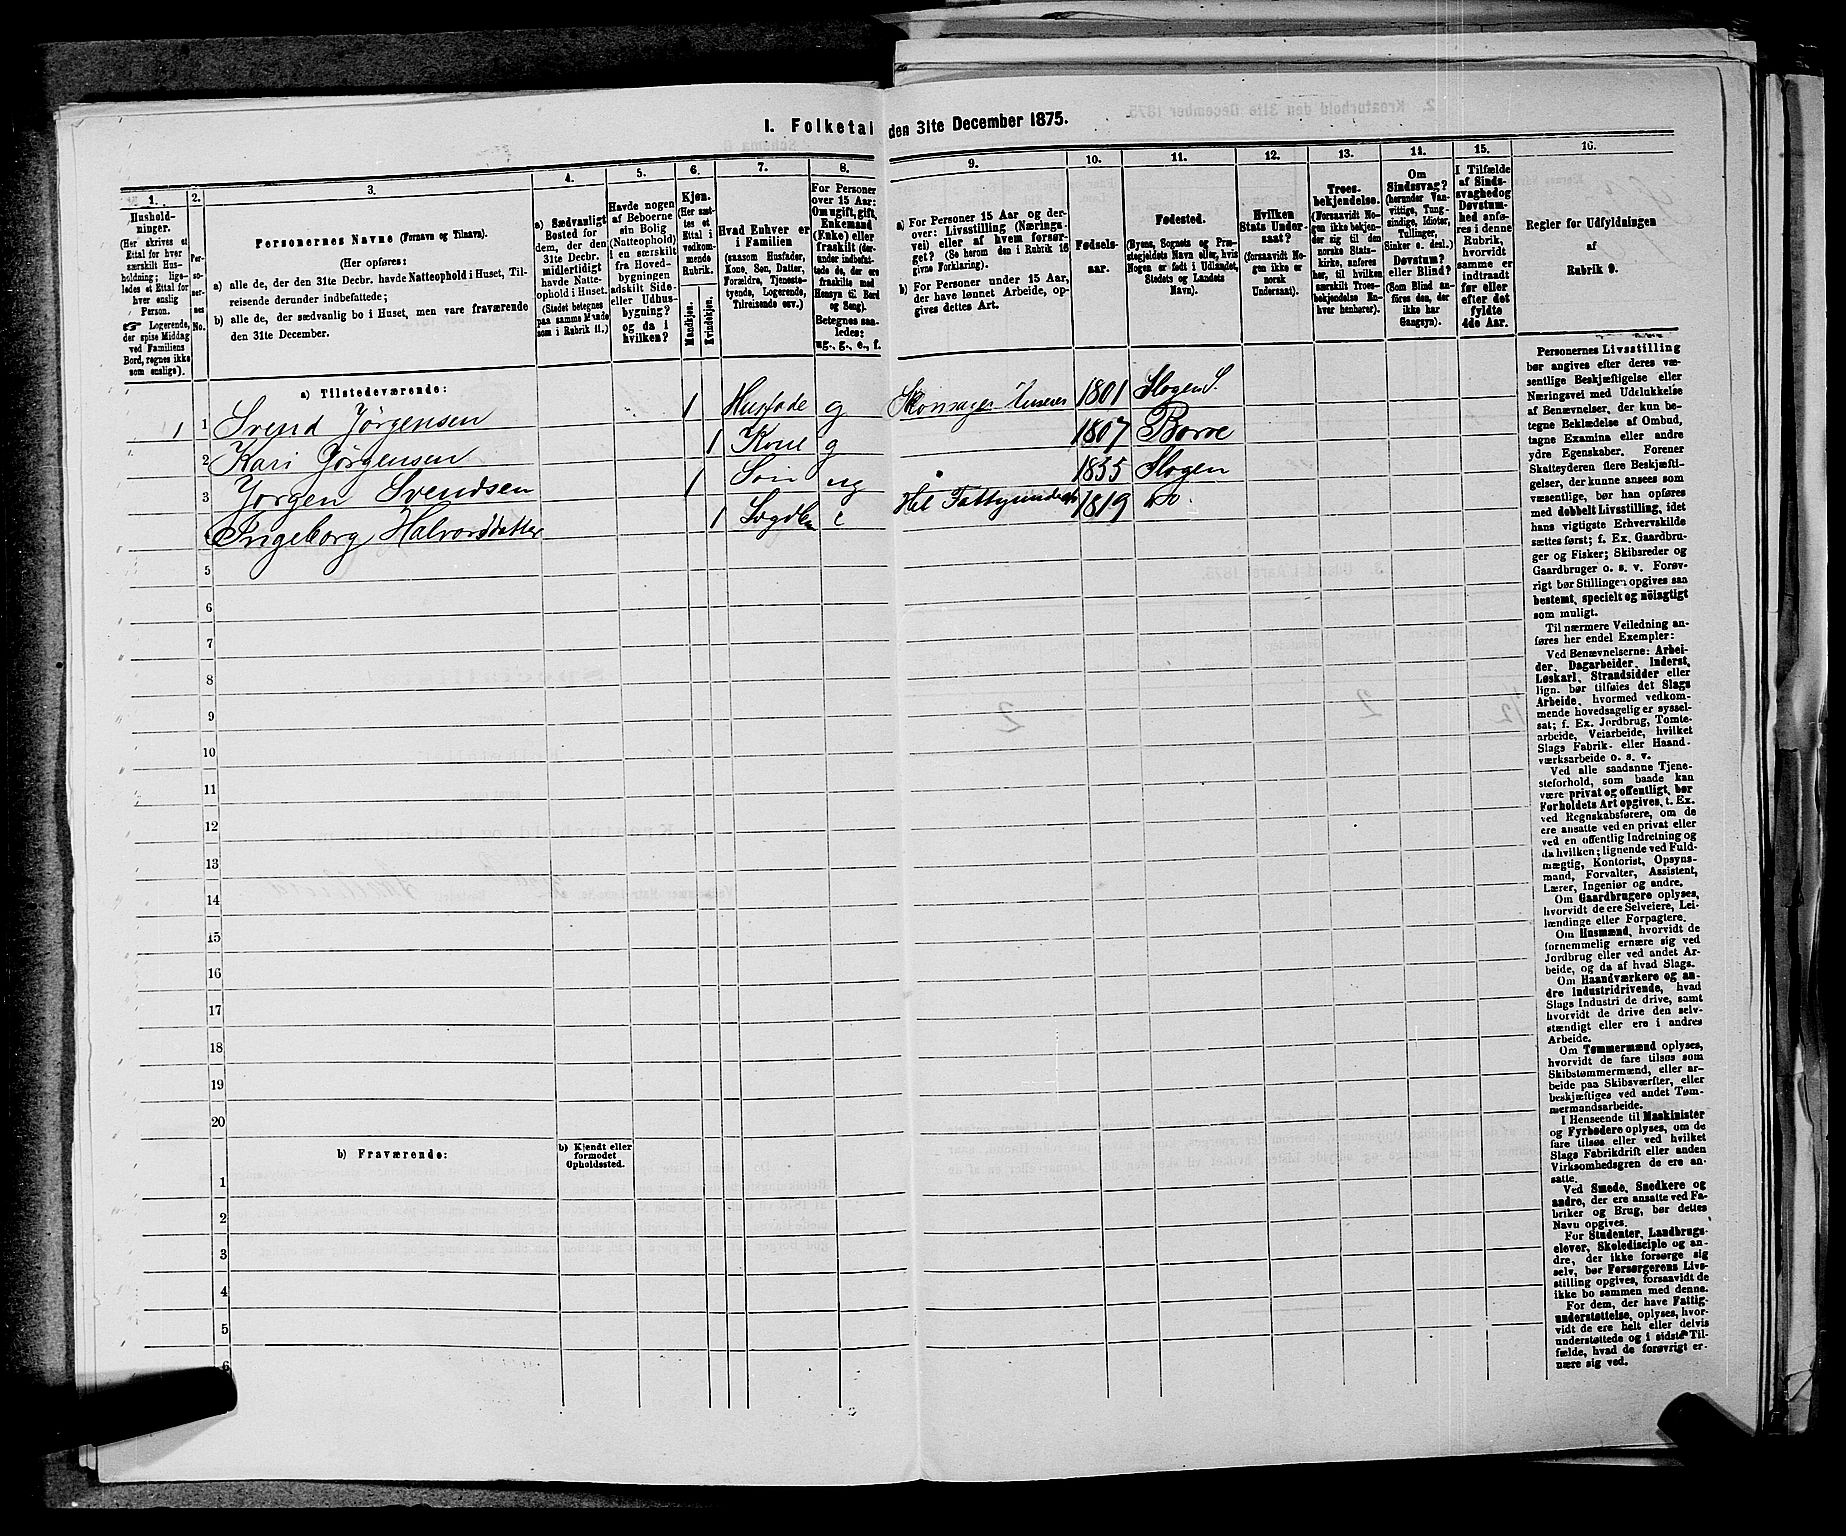 I. Folketal den 31te December 1875.
1.
Husholdninger.
(Her skrives et
Ettal for hver
særskilt Husholdning; ligeledes et Ettal for
hver enslig
Person.
☞ Logerende,
der spise Middag
ved Familiens
Bord, regnes ikke
som enslige).
2.
Personernes
No.
3.
Personernes Navne (Fornavn og Tilnavn).
(Her opføres:
a) alle de, der den 31te Decbr. havde Natteophold i Huset, Tilreisende derunder indbefattede;
b) alle de, der sædvanlig bo i Huset, men vare fraværende
den 31te December.
4.
a) Sædvanligt
Bosted for
dem, der den
31te Decbr.
midlertidigt
havde Natteophold i Huset.
(Stedet betegnes
paa samme Maade
som i Rubrik 11.)
5.
Havde nogen
af Beboerne
sin Bolig
(Natteophold)
i en særskilt
fra Hovedbygningen
adskilt Side- eller Udhusbygning?
og da i
hvilken?
6.
Kjøn.
(Her sættes et
Ettal i
vedkommende
Rubrik.
Mandkjøn.
Kvindekjøn.
7.
Hvad Enhver er
i Familien
(saasom Husfader,
Kone, Søn, Datter,
Forældre, Tjenestetyende, Logerende,
Tilreisende osv.)
8.
For Personer
over 15 Aar:
Om ugift, gift,
Enkemand
(Enke) eller
fraskilt (derunder indbefattede de, der ere
fraskilte med
Hensyn til Bord
og Seng).
Betegnes saaledes:
ug., g., e., f.
9.
a) For Personer 15 Aar og derover: Livsstilling (Næringsvei) eller af hvem forsørget? (Se herom den i Rubrik 16
givne Forklaring).
b) For Personer under 15 Aar,
der have lønnet Arbeide, opgives dettes Art.
10.
Fødselsaar.
11.
Fødested.
(Byens, Sognets og Præstegjeldets Navn eller, hvis
Nogen er født i Udlandet,
Stedets og Landets
Navn).
12.
Hvilken
Stats Undersaat?
(forsaavidt Nogen ikke er
norsk
Undersaat).
13.
Troesbekjendelse.
(Forsaavidt Nogen ikke bekjender sig til den
norske Statskirke, anføres
her, til hvilken
særskilt Troesbekjendelse Enhver henhører).
14.
Om
Sindssvag?
(herunder Vanvittige, Tungsindige, Idioter,
Tullinger,
Sinker o. desl.)
Døvstum?
eller Blind?
(Som Blind anføres den, der
ikke har
Gangsyn).
15.
I Tilfælde
af Sindssvaghed og
Døvstumhed anføres i denne
Rubrik,
hvorvidt
samme er
indtraadt
før eller
efter det
fyldte
4de Aar.
16.
Regler for Udfyldningen
af
Rubrik 9.
a) Tilstedeværende:
1 1 Svend Jörgensen 1 Husfade g 1801 Slogen S.
2 Kari Jörgensen 1 Kone g 1807 Borre
3 Jörgen Svendsen 1 Sön ug 1835 Slogen
Ingeborg Halvorsdatter 1 e 1819 do
5
6
7
8
9
10
11
12
13
14
15
16
17
18
19
20
b) Fraværende:
b) Kjendt eller
formodet
Opholdssted.
1
2
3
4
5
6
Personernes Livsstilling
bør angives efter deres væsentlige Beskjæftigelse eller
Næringsvei med Udelukkelse
af Benævnelser, der kun betegne Beklædelse af Ombud,
tagne Examina eller andre
ydre Egenskaber. Forener
Skatteyderen flere Beskjæftigelser, der kunne ansees som
væsentlige, bør han opføres
med dobbelt Livsstilling, idet
hans vigtigste Erhvervskilde
sættes først; f. Ex. Gaardbruger og Fisker; Skibsreder og
Gaardbruger o. s. v. Forøvrigt bør Stillingen opgives saa
bestemt, specielt og nøiagtigt
som muligt.
Til nærmere Veiledning anføres her endel Exempler:
Ved Benævnelserne: Arbeider, Dagarbeider, Inderst,
Løskarl, Strandsidder eller
lign. bør tilføies det Slags
Arbeide, hvormed vedkommende hovedsagelig er sysselsat; f. Ex. Jordbrug, Tomtearbeide, Veiarbeide, hvilket
Slags Fabrik- eller Haandværksarbeide o. s. v.
Ved alle saadanne Tjenesteforhold, som baade kan
være privat og offentligt, bør
Forholdets Art opgives, t. Ex.
ved Regnskabsførere, om de
ere ansatte ved en privat eller
ved en offentlig Indretning og
da hvilken; lignende ved Fuldmægtig, Kontorist, Opsynsmand, Forvalter, Assistent,
Lærer, Ingeniør og andre.
Om Gaardbrugere oplyses,
hvorvidt de ere Selveiere, Leilændinge eller Forpagtere.
Om Husmænd, hvorvidt de
fornemmelig ernære sig ved
Jordbrug eller ved andet Arbeide, og da af hvad Slags.
Om Haandværkere og andre Industridrivende, hvad
Slags Industri de drive, samt
hvorvidt de drive den selvstændigt eller ere i andres
Arbeide.
Om Tømmermænd oplyses,
hvorvidt de fare tilsøs som
Skibstømmermænd, eller arbeide paa Skibsværfter, eller
beskjæftiges ved andet Tømmermandsarbeide.
I Henseende til Maskinister
og Fyrbødere oplyses, om de
fare tilsøs eller ved hvilket
Slags Fabrikdrift eller anden
Virksomhedsgren de ere ansatte.
Ved Smede, Snedkere og
andre, der ere ansatte ved Fabriker og Brug, bør dettes
Navn opgives.
For Studenter, Landbrugselever, Skoledisciple og andre, der ikke forsørge sig
selv, bør Forsørgerens Livsstilling opgives, forsaavidt de
ikke bo sammen med denne.
For dem, der have Fattigunderstøttelse, oplyses, hvorvidt de ere helt eller delvis
understøttede og i sidste Tilfælde, hvad de forøvrigt ernære sig ved.